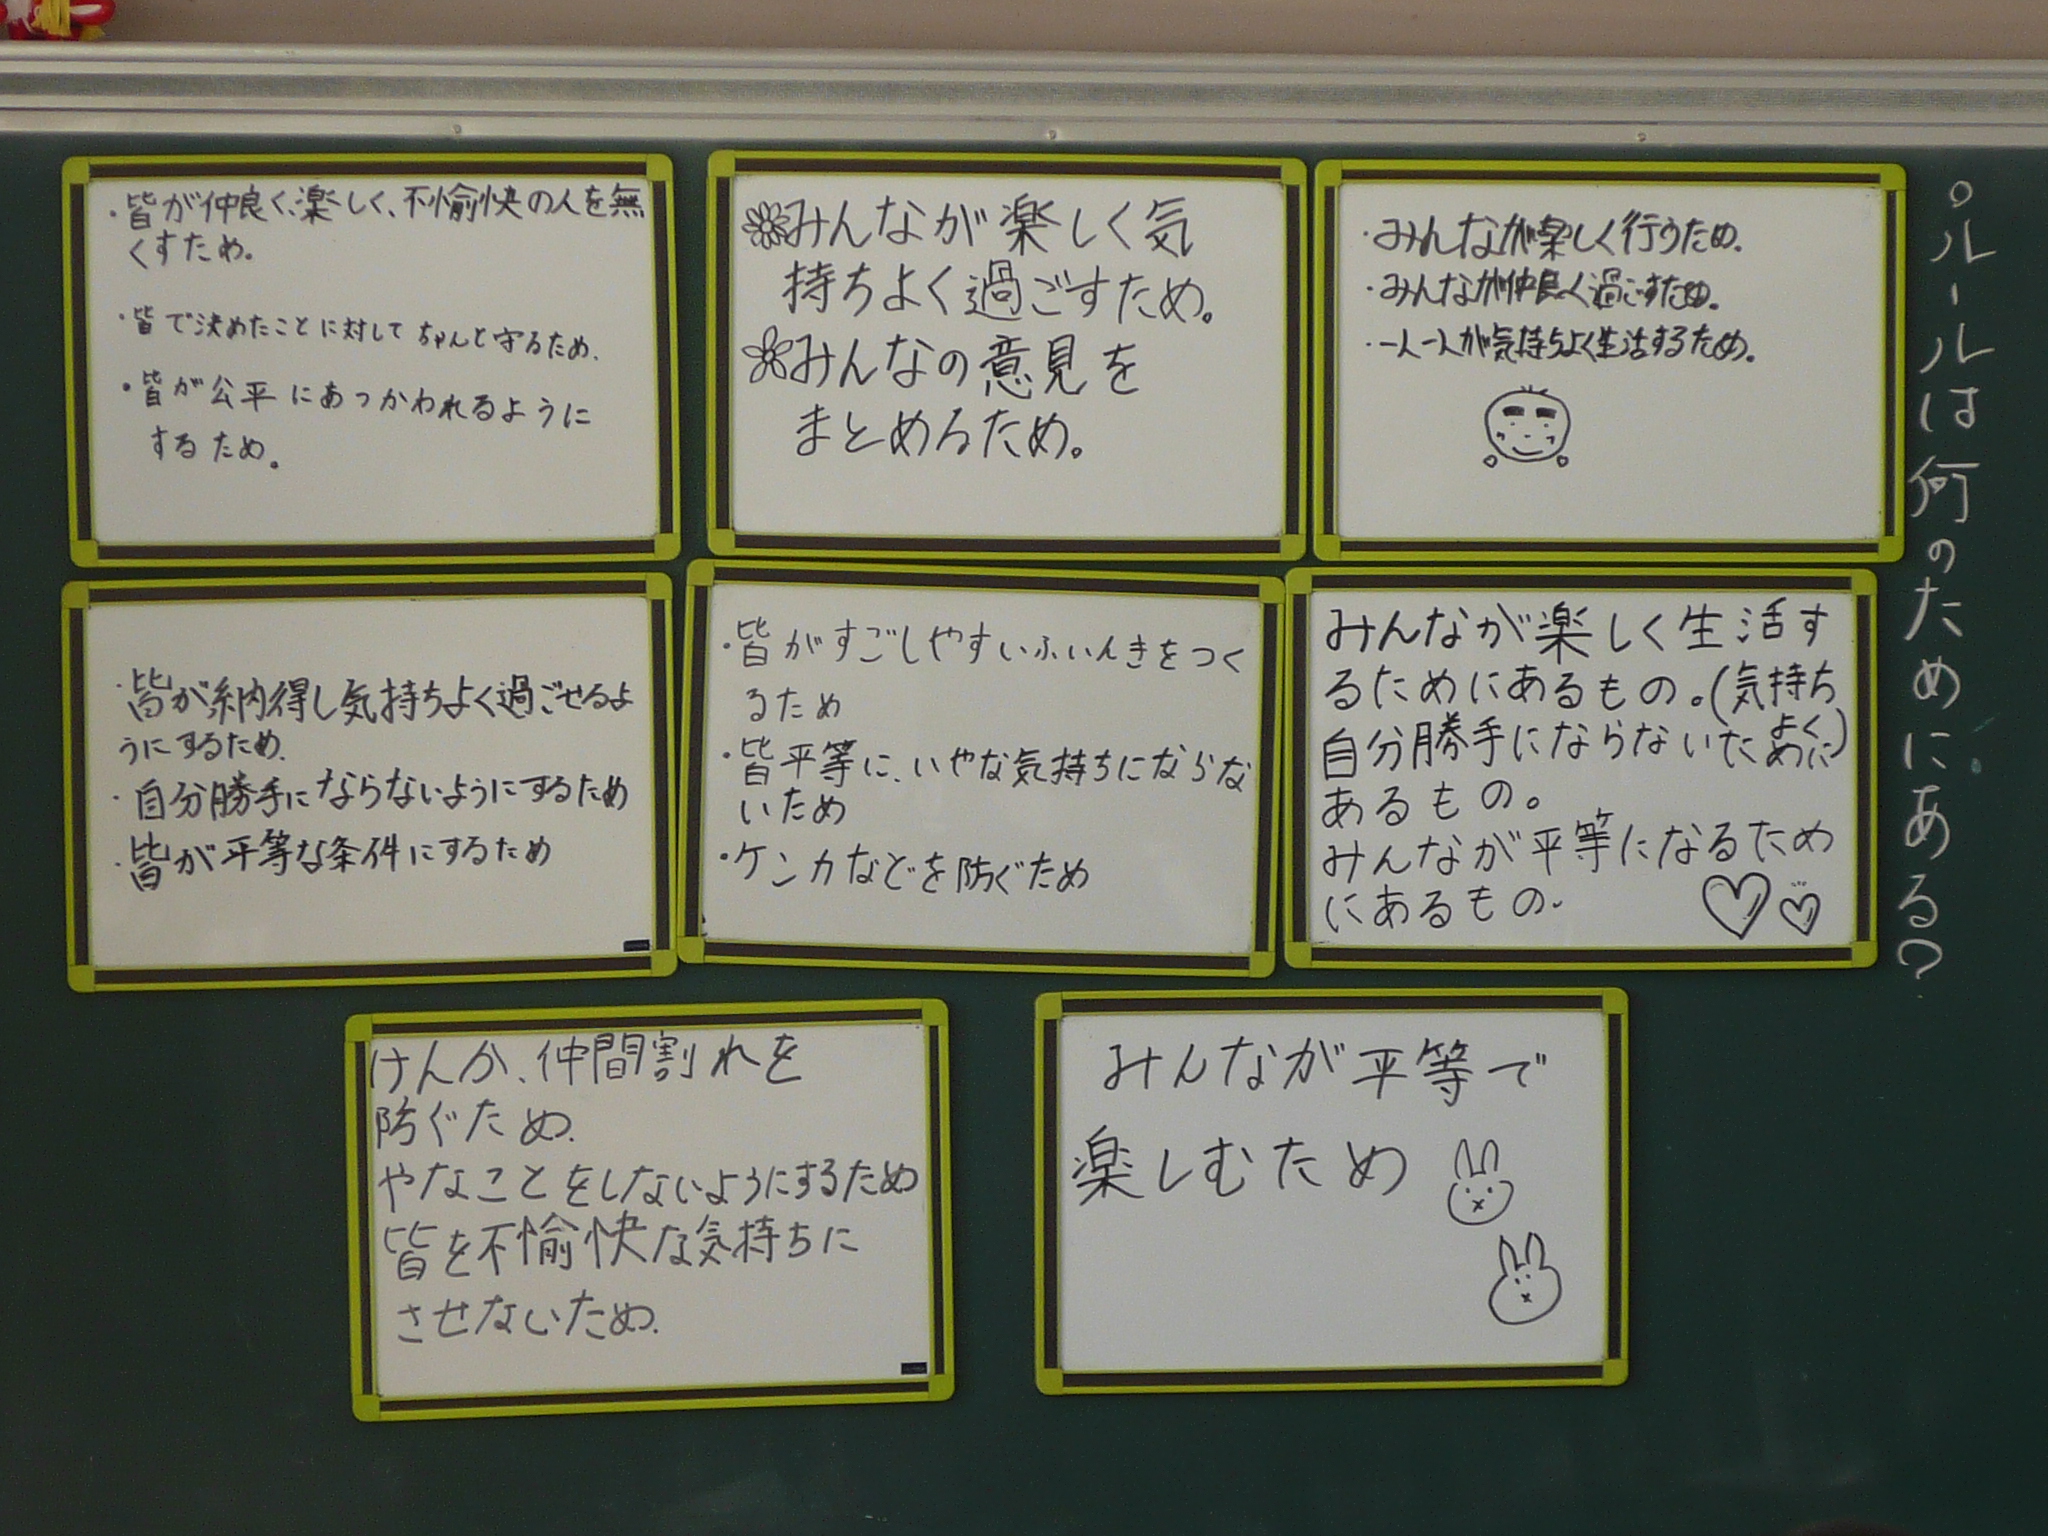 ルールは何のためにある?
・みんなが楽しく行うため。
・みんなが仲良く過ごすため。
・一人一人が気持ちよく生活するため。
みんなが楽しく気
持ちよく過ごすため。
みんなの意見を
まとめるため。
・皆が仲良く、楽しく、不愉快の人を無
くすため。
・皆で決めたことに対してちゃんと守るため、
・皆が公平にあつかわれるように
するため。
みんなが楽しく生活す
るためにあるもの。(気持ち
よく)
自分勝手にならないために
あるもの。
みんなが平等になるため
にあるもの.
・皆がすごしやすいふいんきをつく
るため
・皆平等に、いやな気持ちにならな
いため
・ケンカなどを防ぐため
・皆が納得し気持ちよく過ごせるよ
うにするため.
・自分勝手にならないようにするため
・皆が平等な条件にするため
みんなが平等で
楽しむため
けんか、仲間割れを
防ぐため.
やなことをしないようにするため
皆を不愉快な気持ちに
させないため.